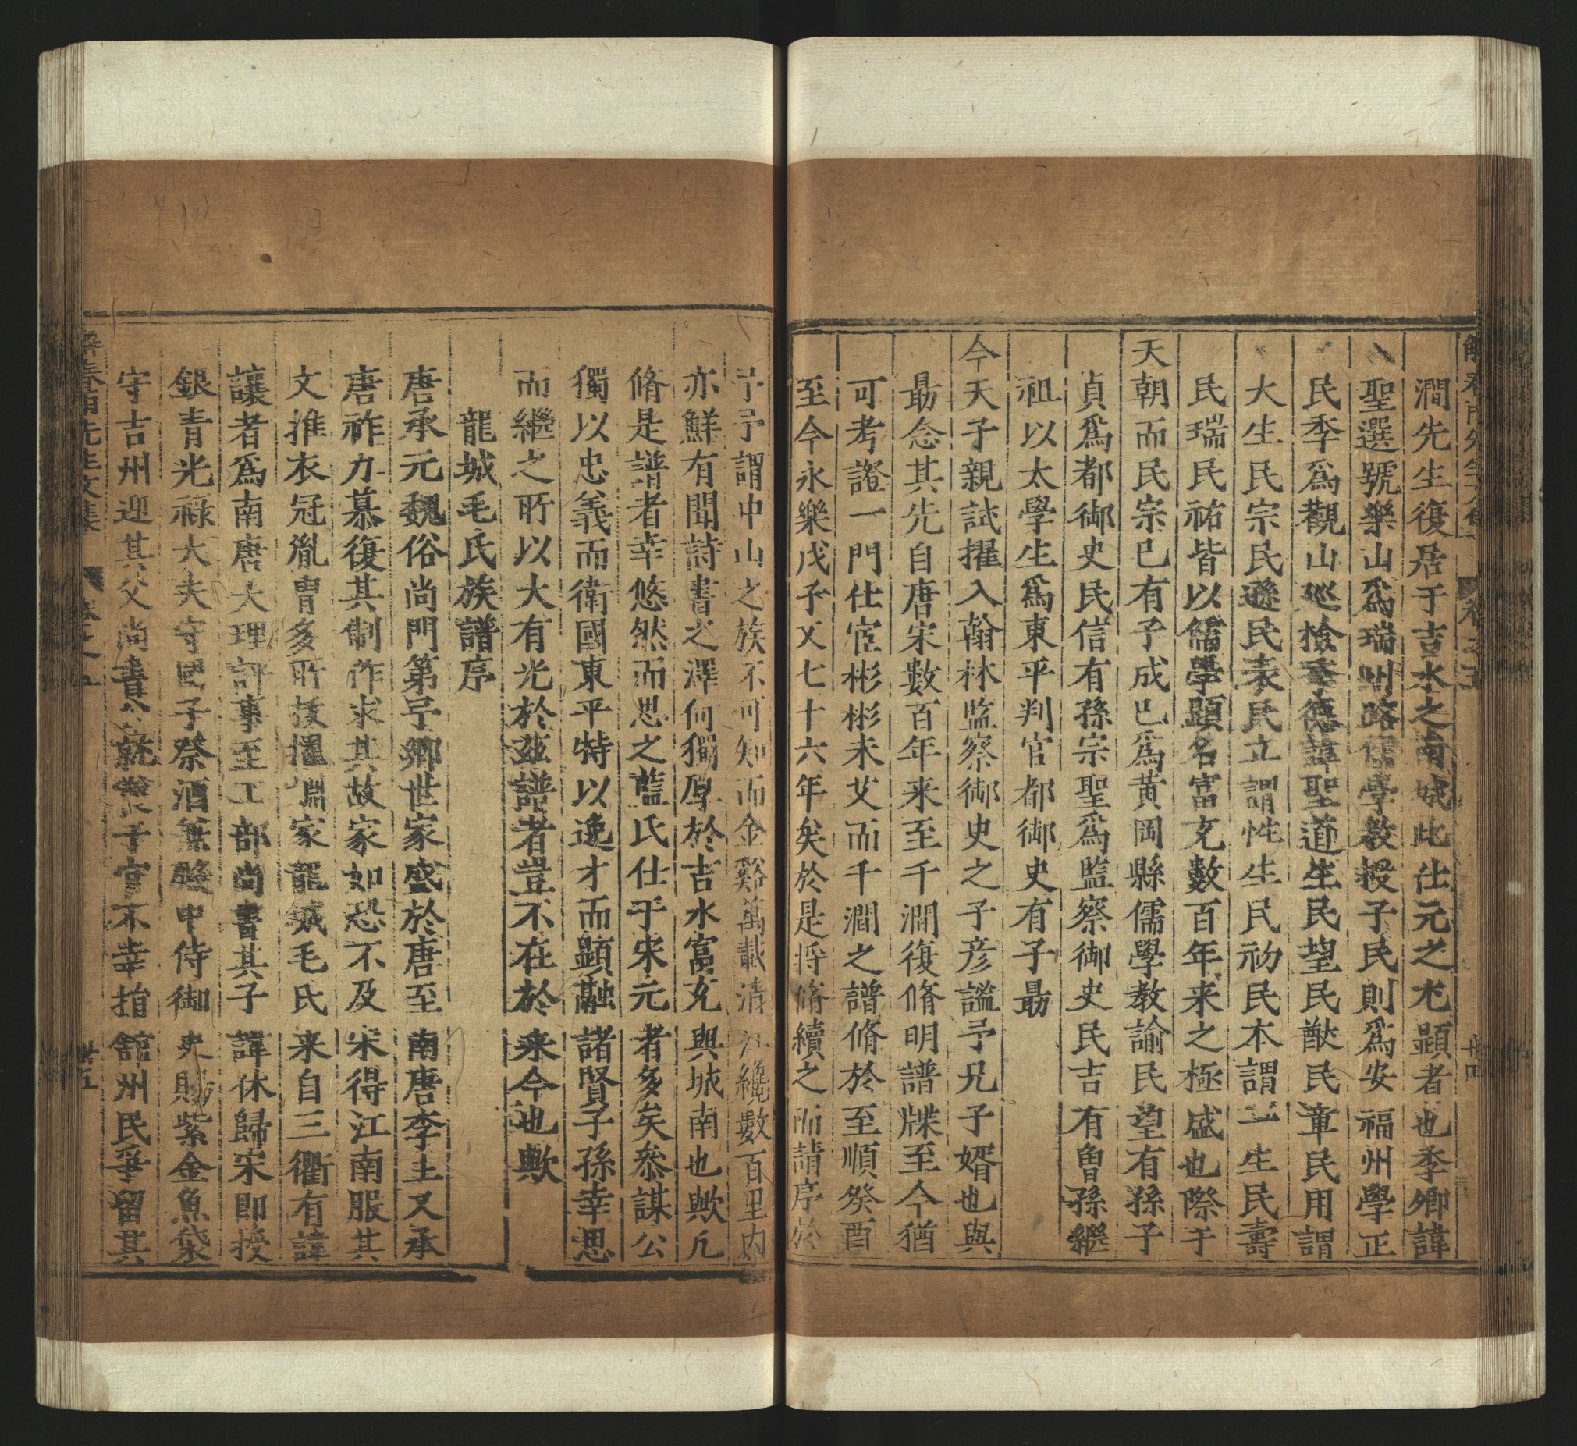 澗先生復居于吉水之南城此仕元之尤顯者也季卿諱
聖選號樂山爲瑞州路儒學教授子民則爲安福州學正
民季爲觀山廵檢季德諱聖道生民望民猷民章民用謂
大生民宗民遜民表民立謂性生民初民本謂立生民壽
民瑞民祐皆以儒學顯名富充數百年来之極盛也際于
天朝而民宗已有子成巳爲黃岡縣儒學教諭民望有孫子
貞爲都御史民信有孫宗聖爲監察御史民吉有曾孫繼
祖以太學生爲東平判官都御史有子勗
今天子親試擢入翰林監察御史之子彦謐予兄子婿也與
勗念其先自唐宋數百年来至千澗復脩明譜牒至今猶
可考證一門仕宦彬彬未艾而千澗之譜脩於至順癸酉
至今永樂戊子又七十六年矣於是将脩續之而請序於
予予謂中山之族不可知而金谿萬載清江纔數百里内
亦鮮有聞詩書之澤何獨厚於吉水富充與城南也歟凢
脩是譜者幸悠然而思之藍氏仕于宋元者多矣叅謀公
獨以忠義而衛國東平特以逸才而顯融諸賢子孫幸思
而繼之所以大有光於兹譜者豈不在於来今也歟
龍城毛氏族譜序
唐承元魏俗尚門第㝍卿世家盛於唐至南唐李主又承
唐祚力慕復其制作求其故家如恐不及宋得江南服其
文推衣冠胤冑多所拔擢㴊家龍城毛氏来自三衢有諱
讓者爲南唐大理評事至工部尚書其子諱休歸宋即授
銀青光祿大夫守國子祭酒兼殿中侍御史賜紫金魚袋
守吉州迎其父尚書公就養子官不幸捐舘州民爭留其